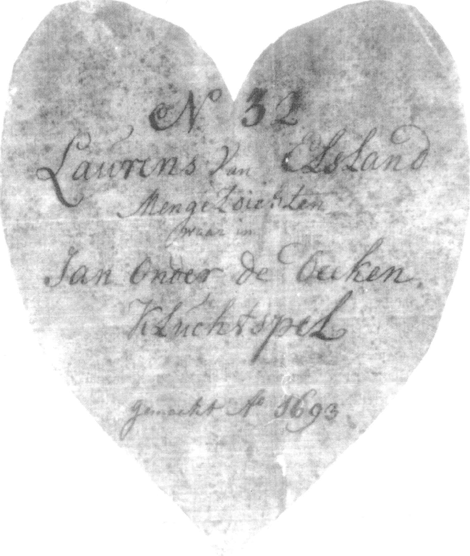 No 32
Laurens Van Elsland
Mengeldichten
waar in
Jan Onder de Deken.
Kluchtspel
gemaakt Ao 1693